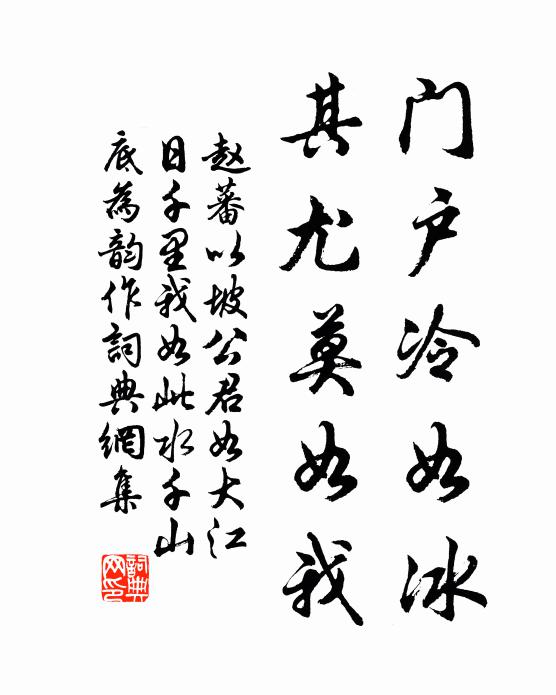 门户冷如冰
其尤莫如我
赵蕃以坡公君如大江
日千里我如此水千山
底為韵作詞典網集
詞典网印